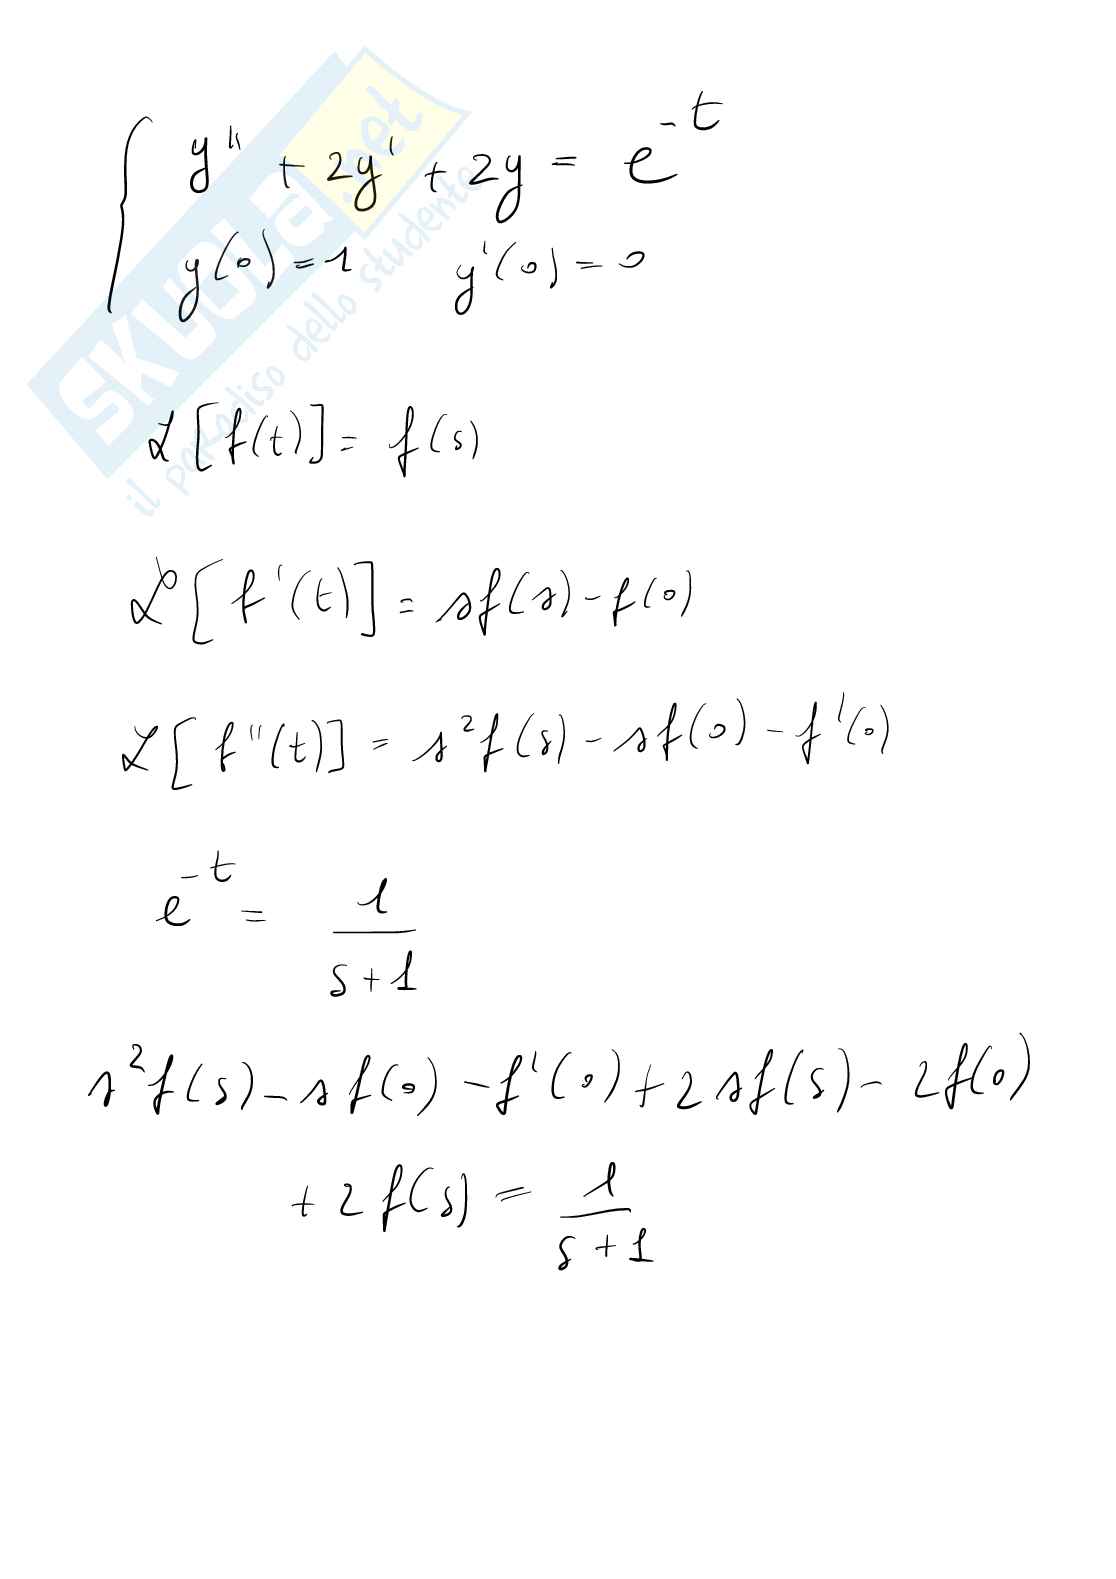 y'' + 2y' + 2y = e^-t
y(0) = 1 y'(0) = 0
SKUOLA.net
il paradiso dello studente
ℒ[f(t)] = f(s)
ℒ[f'(t)] = sf(s) - f(0)
ℒ[f''(t)] = s²f(s) - sf(0) - f'(0)
e^-t = 1/(s+1)
s²f(s) - sf(0) - f'(0) + 2sf(s) - 2f(0)
+ 2f(s) = 1/(s+1)